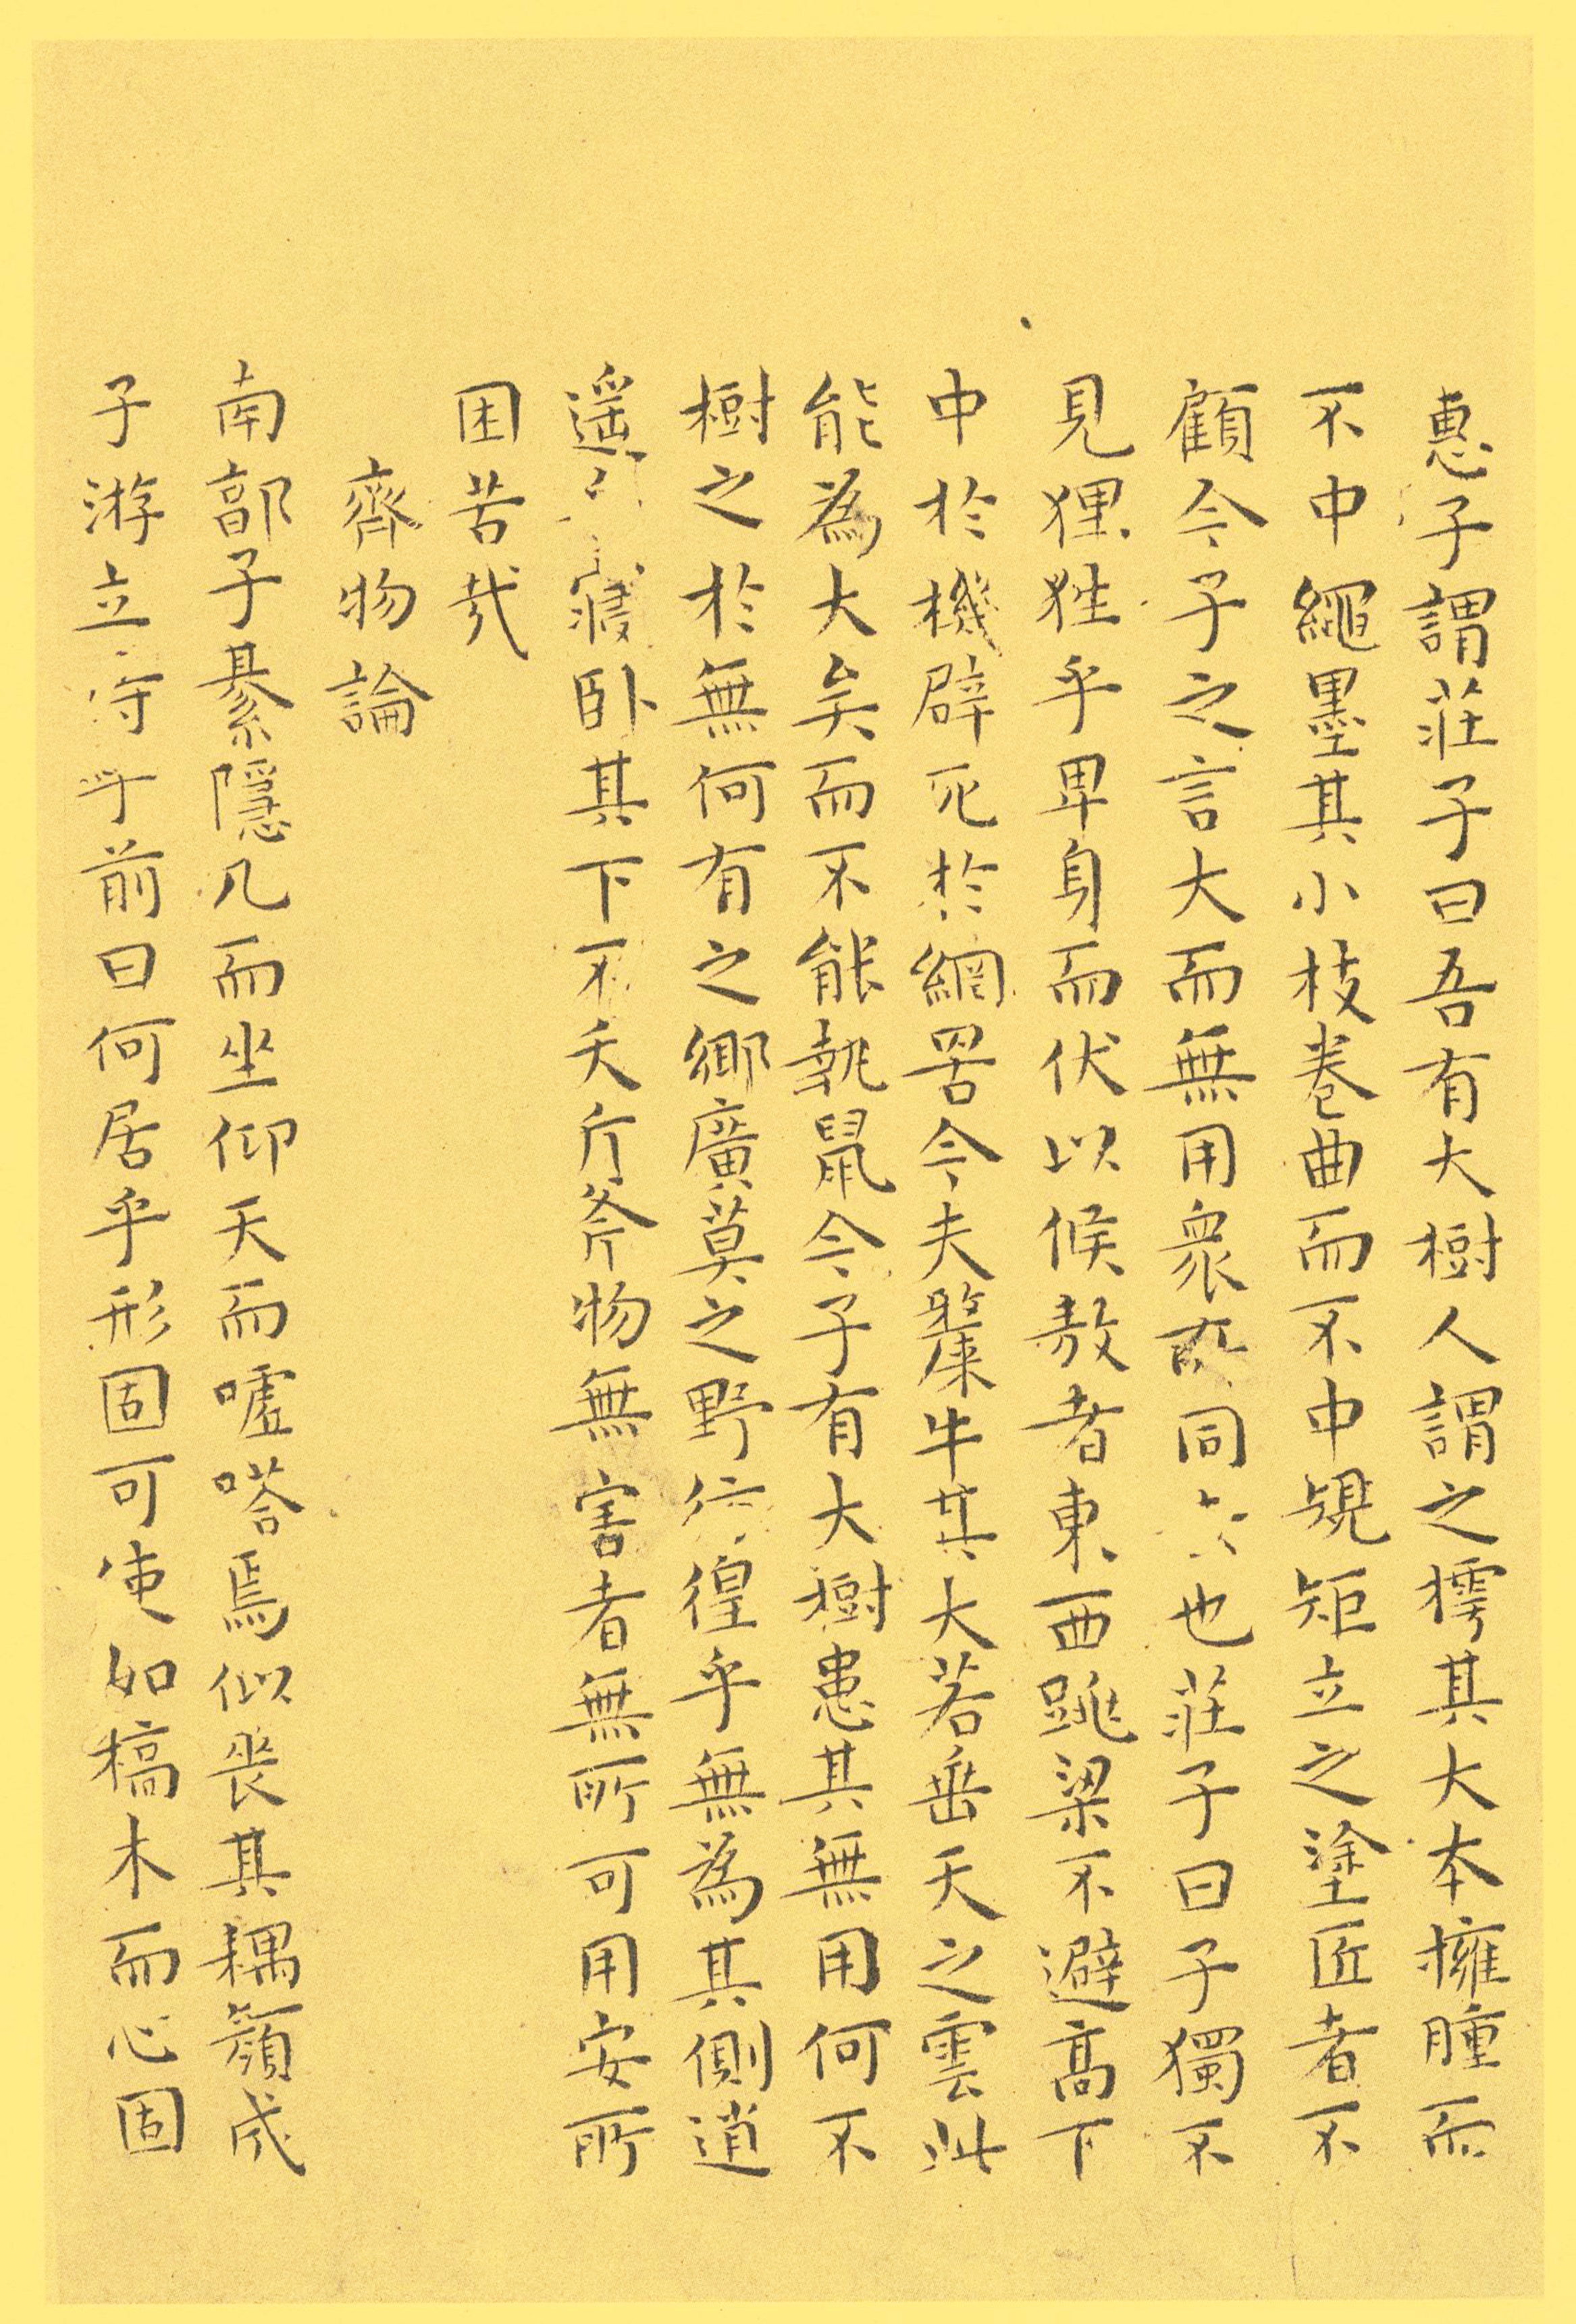 惠子謂莊子曰吾有大樹人謂之樗其大本擁腫而
不中繩墨其小枝卷曲而不中規矩立之塗匠者不
顧今子之言大而無用衆所同也莊子曰子獨不
見狸狌乎卑身而伏以候敖者東西跳梁不避高下
中於機辟死於網罟今夫斄牛其大若垂天之雲此
能為大矣而不能執鼠今子有大樹患其無用何不
樹之於無何有之鄉廣莫之野彷徨乎無為其側逍
遥寢卧其下不夭斤斧物無害者無所可用安所
困苦哉
齊物論
南郭子綦隱几而坐仰天而嘘嗒焉似喪其耦顏成
子游立侍乎前曰何居乎形固可使如槁木而心固